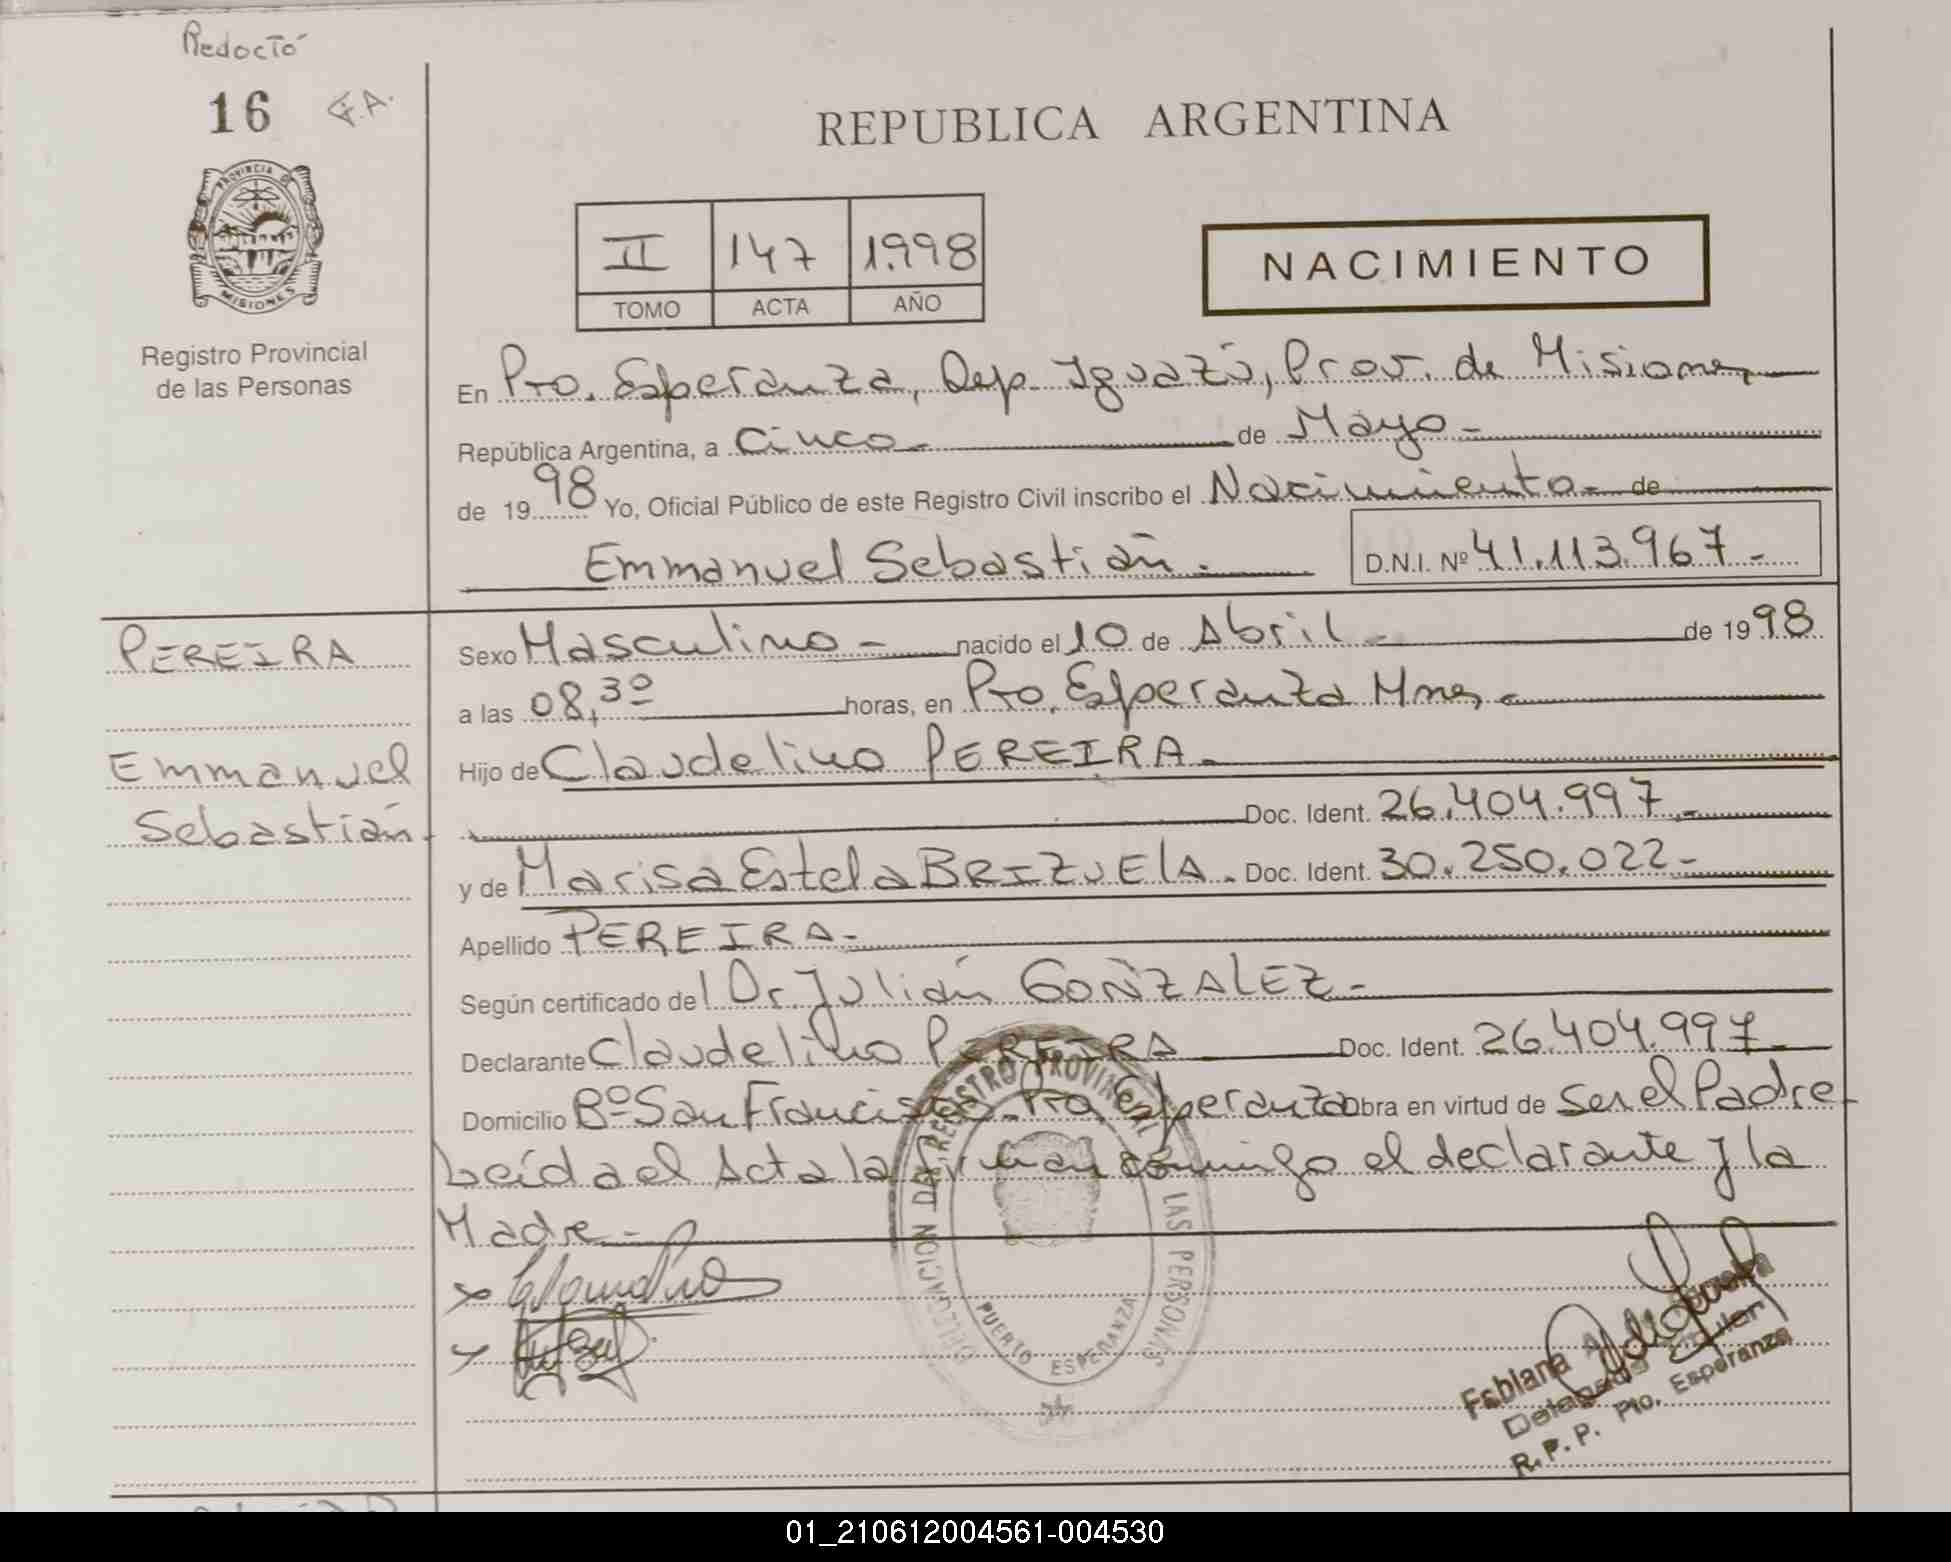 Redactó
16 F.A.
PROVINCIA DE
MISIONES
Registro Provincial
de las Personas
REPUBLICA ARGENTINA
II 147 1.998
TOMO ACTA AÑO
NACIMIENTO
En Pto. Esperanza, Dep. Iguazú, Prov. de Misiones
República Argentina, a Cinco.- de Mayo.-
de 1998 Yo, Oficial Público de este Registro Civil inscribo el Nacimiento.- de
Emmanuel Sebastián.- D.N.I. Nº 41.113.967.-
PEREIRA
Emmanuel
Sebastián.
Sexo Masculino.- nacido el 10 de Abril.- de 1998
a las 08,30 horas, en Pto. Esperanza Mnes.-
Hijo de Claudelino PEREIRA.-
Doc. Ident. 26.404.997.-
y de Marisa Estela BRIZUELA. Doc. Ident. 30.250.022.-
Apellido PEREIRA.-
Según certificado del Dr. Julián GONZALEZ.-
Declarante Claudelino PEREIRA Doc. Ident. 26.404.997.-
Domicilio Bº San Francisco - Pto. Esperanza obra en virtud de Ser el Padre
Leída el Acta la firman conmigo el declarante y la
Madre.-
DELEGACION DEL REGISTRO PROVINCIAL DE LAS PERSONAS
PUERTO ESPERANZA
Fabiana
Delegada Titular
R.P.P. Pto. Esperanza
01_210612004561-004530